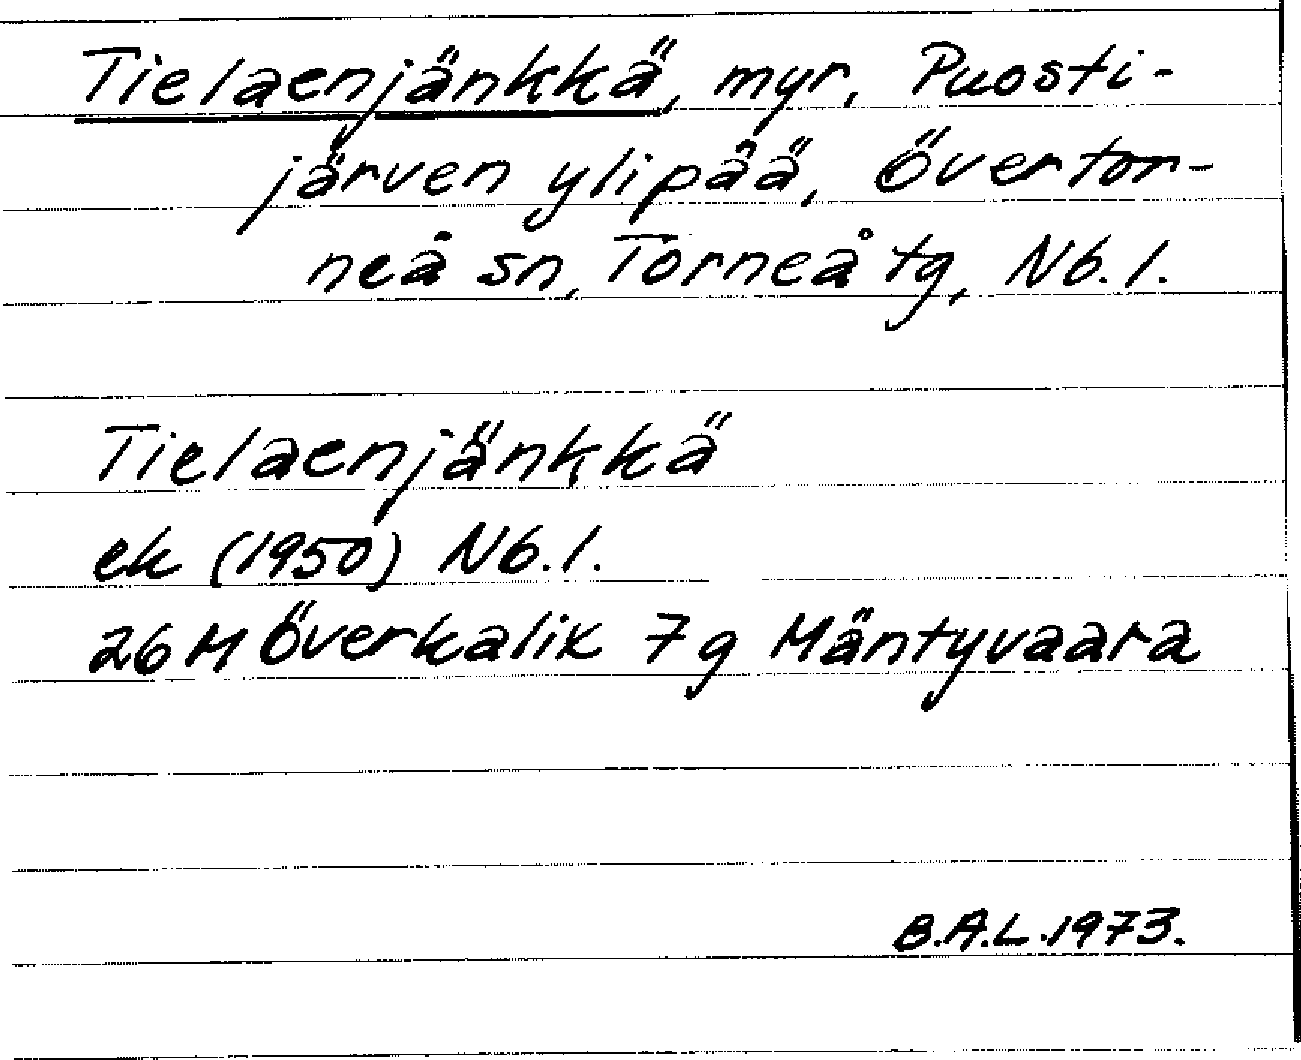 Tielaenjänkkä, myr, Puosti-
järven ylipää, Övertor-
neå sn, Torneå tg, Nb.l.
Tielaenjänkkä
ek (1950) Nb.l.
26 M Överkalix 7g Mäntyvaara
B.A.L. 1973.